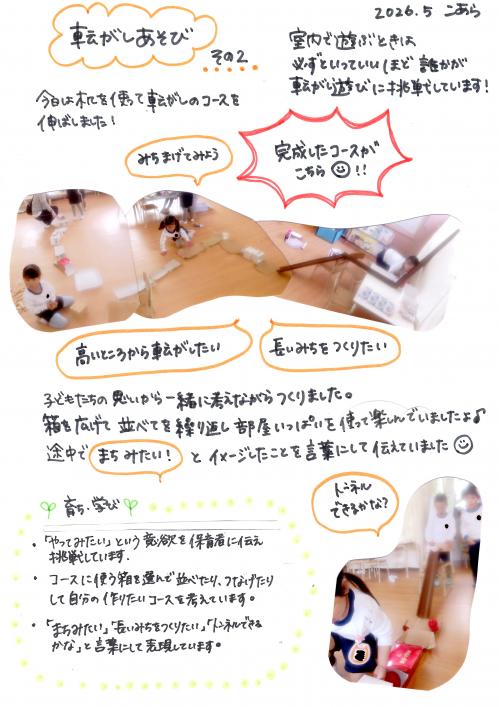 転がしあそび
その2
2026.5 こあら
室内で遊ぶときは
必ずといっていいほど 誰かが
転がし遊びに挑戦しています!
今日は机を使って転がしのコースを
伸ばしました!
みちまげてみよう
完成したコースが
こちら!!
高いところから転がしたい
長いみちをつくりたい
子どもたちの思いから一緒に考えながらつくりました。
箱を広げて並べてを繰り返し部屋いっぱいを使って楽しんでいましたよ♪
途中で まちみたい! とイメージしたことを言葉にして伝えていました
トンネル
できるかな?
育ち・学び
・「やってみたい」という意欲を保育者に伝え
挑戦しています。
・コースに使う箱を選んで並べたり、つなげたり
して自分の作りたいコースを考えています。
・「まちみたい」「長いみちをつくりたい」「トンネルできる
かな」と言葉にして表現しています。